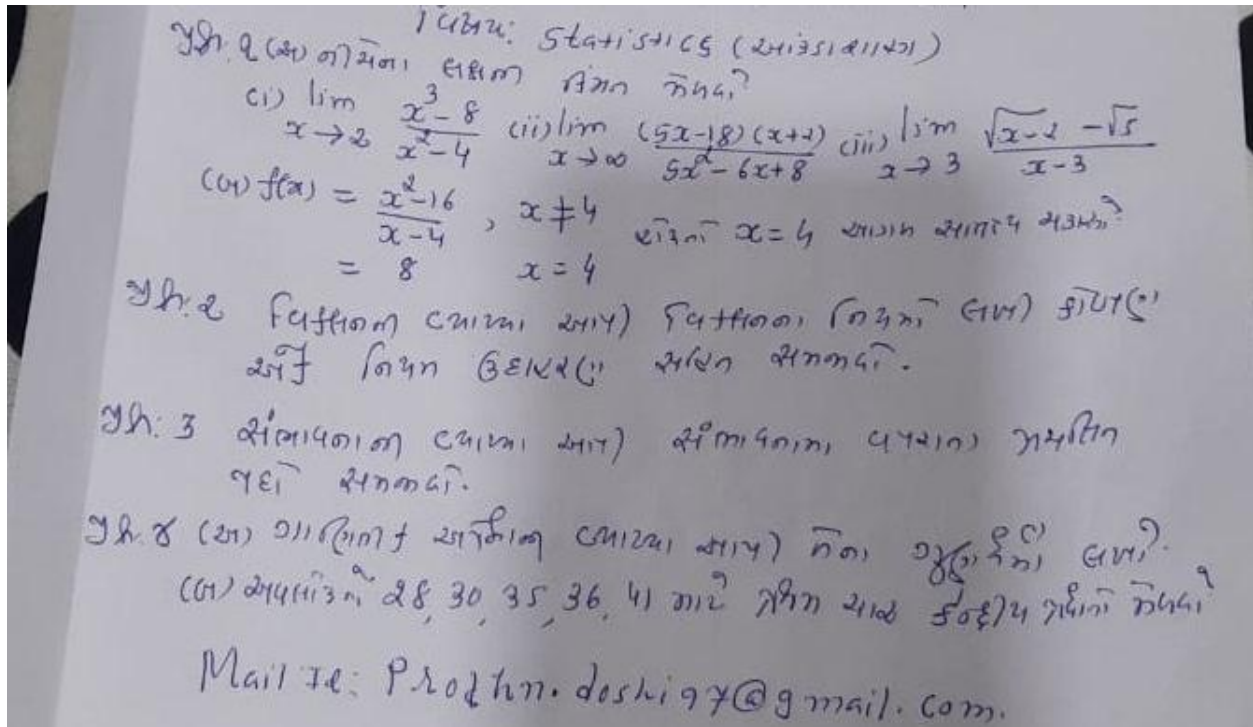 વિષય: Statistics (આંકડાશાસ્ત્ર)
પ્રશ્ન.૧ (અ) નીચેના લક્ષના કિંમત મેળવો
(i) lim x→2 x³-8 / x²-4 (ii) lim x→∞ (5x-18)(x+2) / 5x²-6x+8 (iii) lim x→3 √x-2 -√5 / x-3
(બ) f(x) = x²-16 / x-4 , x≠4 x=4 આગળ સાતત્ય ચકાસો?
= 8 x=4
પ્રશ્ન.૨ વિકલનની વ્યાખ્યા આપી વિકલનના નિયમો લખી કોઈપણ
એક નિયમ ઉદાહરણ સહિત સમજાવો.
પ્રશ્ન: 3 સંભાવનાની વ્યાખ્યા આપી સંભાવનામાં વપરાતા પ્રચલિત
પદો સમજાવો.
પ્રશ્ન.૪ (અ) ગાણિતિક અપેક્ષાની વ્યાખ્યા આપી તેના ગુણધર્મો લખો.
(બ) અવલોકનો 28, 30, 35, 36, 41 માટે પ્રથમ ચાર કેન્દ્રીય પ્રઘાતો મેળવો
Mail Id: Prodhn.doshi97@gmail.com.